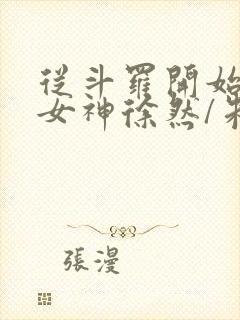 從斗羅開始
女神徐然/
張漫